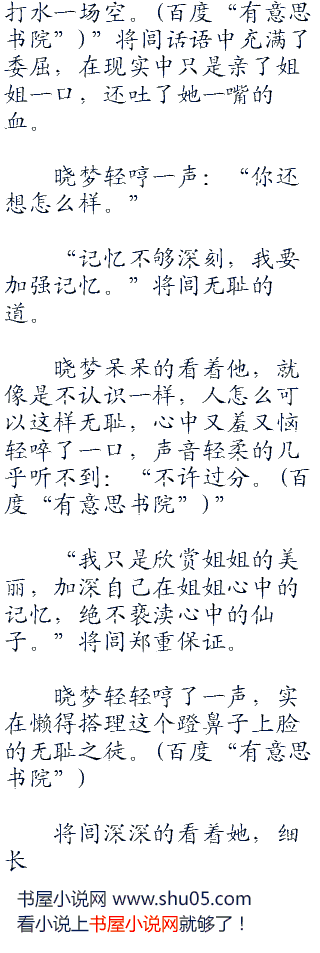 打水一场空。(百度“有意思
书院”)”将闾话语中充满了
委屈，在现实中只是亲了姐
姐一口，还吐了她一嘴的
血。
晓梦轻哼一声：“你还
想怎么样。”
“记忆不够深刻，我要
加强记忆。”将闾无耻的
道。
晓梦呆呆的看着他，就
像是不认识一样，人怎么可
以这样无耻，心中又羞又恼
轻啐了一口，声音轻柔的几
乎听不到：“不许过分。(百
度“有意思书院”)”
“我只是欣赏姐姐的美
丽，加深自己在姐姐心中的
记忆，绝不亵渎心中的仙
子。”将闾郑重保证。
晓梦轻轻哼了一声，实
在懒得搭理这个蹬鼻子上脸
的无耻之徒。(百度“有意思
书院”)
将闾深深的看着她，细
长
书屋小说网 www.shu05.com
看小说上书屋小说网就够了！